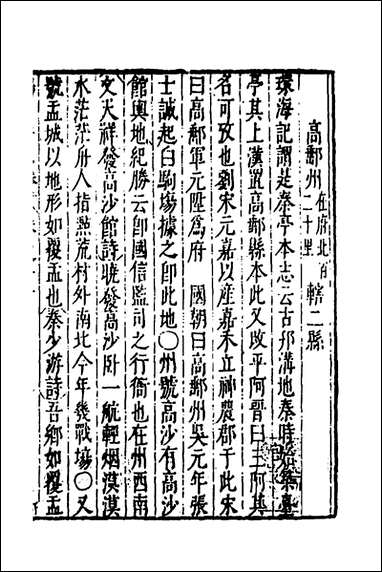 高郵州在府北百二十里轄二縣
珠海記謂是秦亭本志云古邗溝地秦時築臺
亭其上漢置高郵縣本此又改平阿晉曰三阿其
名可攷也劉宋元嘉以産嘉禾立神農郡于此宋
曰高郵軍元陞爲府 國朝曰高郵州吳元年張
士誠起白駒場據之即此地○州號高沙有高沙
館輿地紀勝云即國信監司之行衙也在州西南
文天祥發高沙館詩曉發高沙卧一航輕烟漠漠
水茫茫舟人指㸃荒村外南北今年幾戰場○又
號盂城以地形如覆盂也秦少游詩吾鄉如覆盂